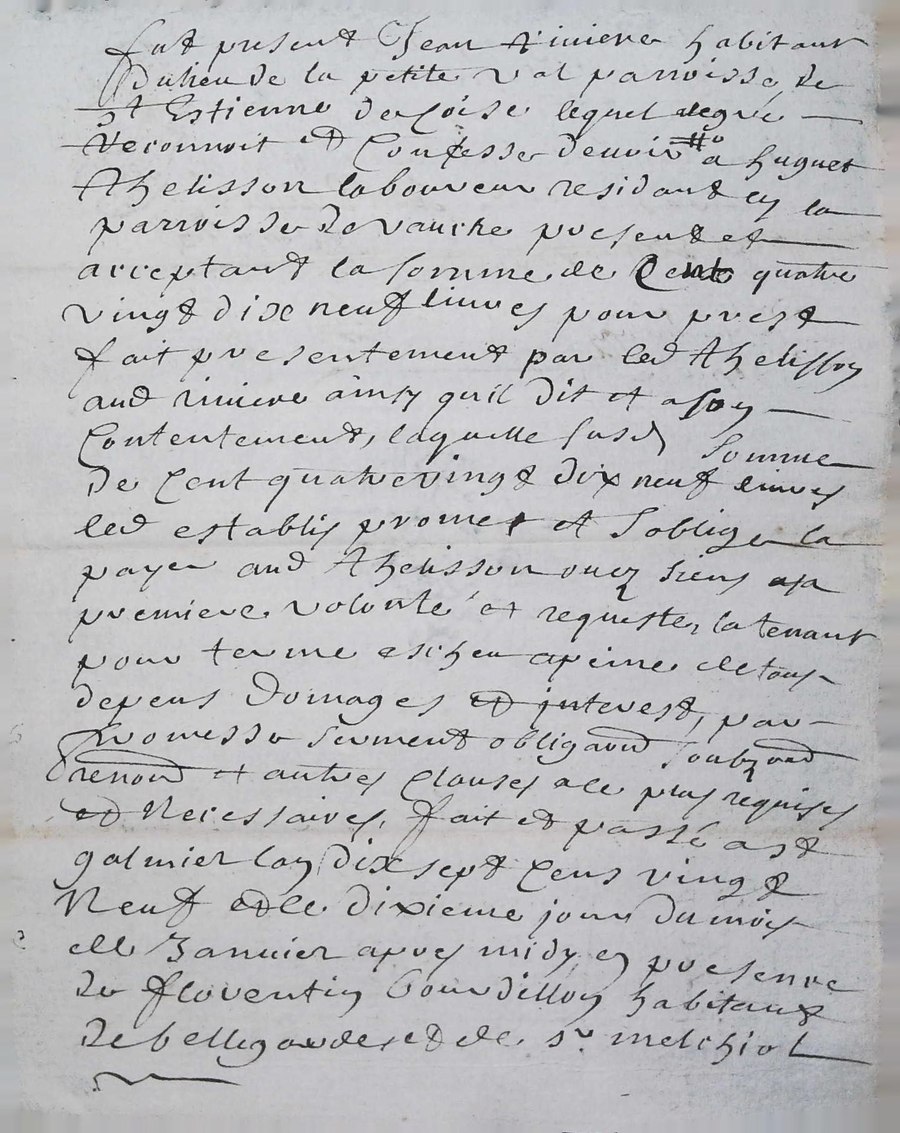 fut present Jean Riviere habitant
du lieu de la petite val parroisse de
st Estienne de Coise lequel de gré
Reconnoit et Confesse devoir a huguet
thelisson laboureur residant en la
parroisse de vauche present et
acceptant la somme de Cent quatre
vingt dix neuf livres pour prest
fait presentement par led thelisson
aud riviere ainsy quil dit et a son
Contentement, laquelle susd somme
De Cent quatrevingt dix neuf livres
led establis promet et soblige la
payer aud thelisson ou ez siens a sa
premiere volonté et requeste, la tenant
pour terme escheu a peine de tous
depens domages et interest, par
promesse serment obligaon soubzaon
renon et autres Clauses a ce plus requises
et Necessaires, fait et passé a st
galmier lan dix sept Cens vingt
Neuf et le dixieme jour du mois
de Janvier apres midy en presence
De florentin bourdillon habitant
de bellegarde et de sr melchiol